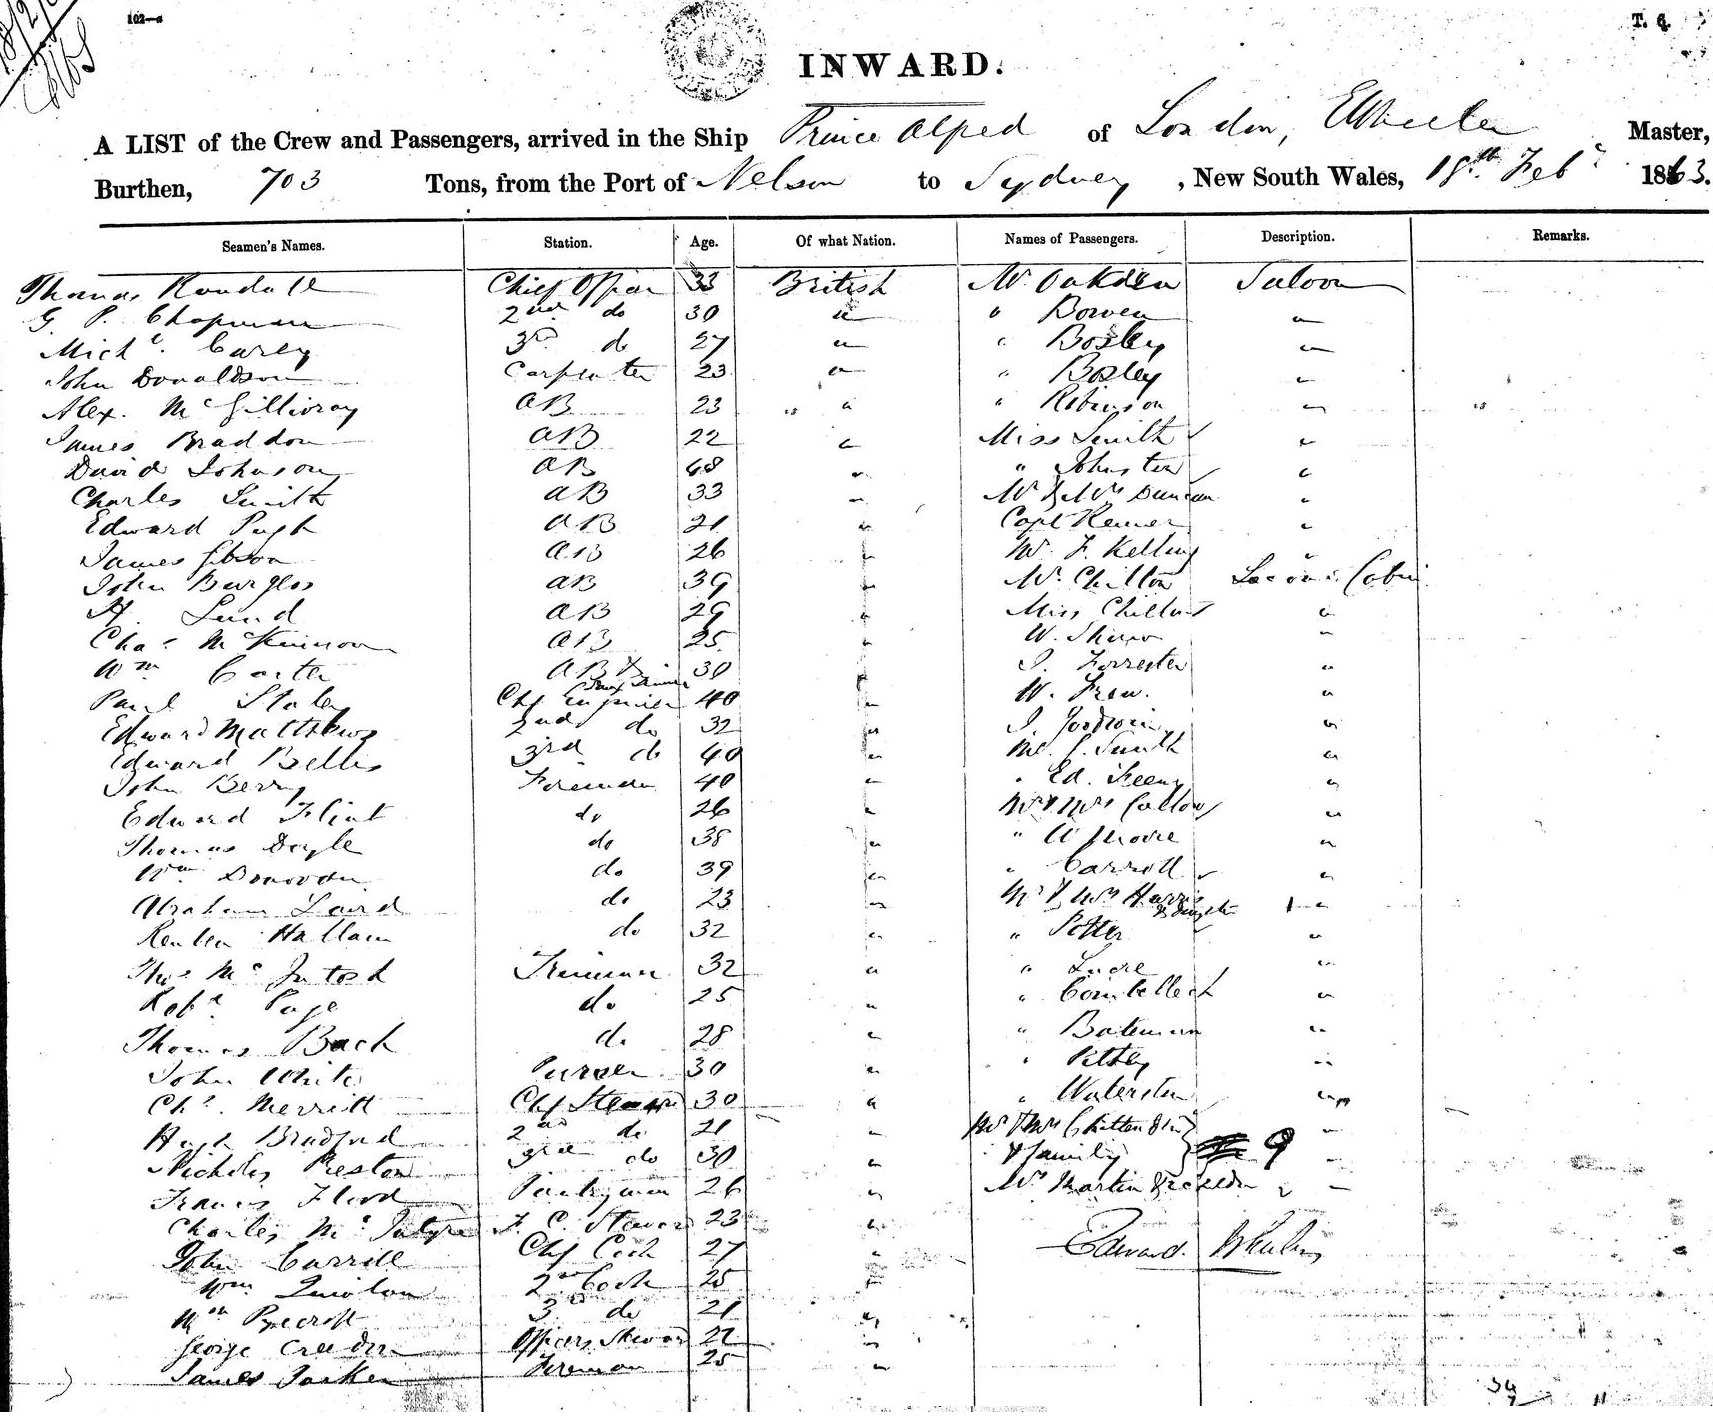 102—a
T. 6.
INWARD.
A LIST of the Crew and Passengers, arrived in the Ship Prince Alfred of London, E Wheeler Master,
Burthen, 703 Tons, from the Port of Nelson to Sydney, New South Wales, 18th Feby 1863.
Seamen's Names. Station. Age. Of what Nation. Names of Passengers. Description. Remarks.
Thomas Randall Chief Officer 33 British Mr. Oakden Saloon
G. P. Chapman 2nd do 30 " " Bowen "
Michl. Carey 3rd do 27 " " Bosley "
John Donaldson Carpenter 23 " " Bosley "
Alex. McGillivray AB 23 " " Robinson "
James Braddon AB 22 " Miss Smith "
David Johnson AB 48 " " Johnston "
Charles Smith AB 33 " Mr & Mrs Duncan "
Edward Pugh AB 21 " Capt "
James Gibson AB 26 " Mr. F. Kelling "
John Burgess AB 39 " Mr. Chilton Second Cabin
H. Lund AB 29 " Miss Chilton "
Chas. McKinnon AB 25 " W. "
Wm Carter AB & 30 " J. Forrester "
Paul Chf Engineer 40 " W. "
Edward Matthews 2nd do 32 " J. Goodwin "
Edward Bellis 3rd do 40 " Mr. J. Smith "
John Berry Fireman 40 " " Ed. Feeny "
Edward Flint do 26 " Mr & Mrs "
Thomas Doyle do 38 " " W Moore "
Wm Donovan do 39 " " Carroll "
Abraham Laird do 23 " Mr & Mrs Harris & daughter 1 "
Reuben Hallam do 32 " " Potter "
Thos McIntosh Trimmer 32 " " "
Robt Page do 25 " " "
Thomas Bach do 28 " " Bateman "
John White Purser 30 " " "
Chs. Merritt Chf Steward 30 " " Waterston "
Hugh Bradford 2nd do 21 " Mr & Mrs Chittenden "
Nicholas Preston 3rd do 30 " & family 9 "
Francis Flood Pantryman 26 " Mr Martin & "
Charles McIntyre F. C. Steward 23 "
John Carroll Chf Cook 27 " Edward Wheeler
Wm Quinlan 2nd Cook 25 "
Wm 3rd do 21 "
George Creedon Officers Steward 22 "
James Parker Fireman 25 "
34